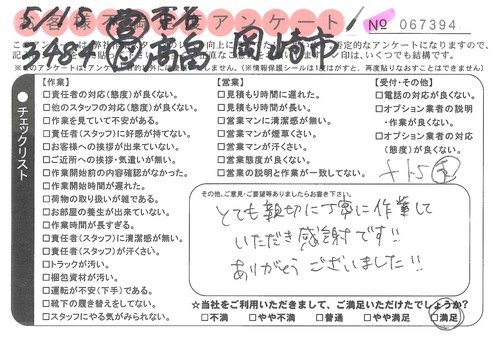 5/15
お客様不満足度アンケート
№ 067394
3484 高 岡崎市
チェックリスト
【作業】
□責任者の対応(態度)が良くない。
□他のスタッフの対応(態度)が良くない。
□作業を見ていて不安がある。
□責任者(スタッフ)に好感が持てない。
□お客様への挨拶が出来ていない。
□ご近所への挨拶・気遣いが無い。
□作業開始前の内容確認がなかった。
□作業開始時間が遅れた。
□荷物の取り扱いが雑である。
□お部屋の養生が出来ていない。
□作業時間が長すぎる。
□責任者(スタッフ)に清潔感が無い。
□責任者(スタッフ)が汗くさい。
□トラックが汚い。
□梱包資材が汚い。
□運転が不安(下手)である。
□靴下の履き替えをしてない。
□スタッフにやる気がみられない。
【営業】
□見積もり時間に遅れた。
□見積もり時間が長い。
□営業マンに清潔感が無い。
□営業マンが煙草くさい。
□営業マンが汗くさい。
□営業態度が良くない。
□営業の説明と作業が一致してない。
【受付・その他】
□電話の対応が良くない。
□オプション業者の説明
・作業が良くない。
□オプション業者の対応
(態度)が良くない。
+15
その他、ご意見・ご要望等ありましたらお書き下さい。
とても親切に丁寧に作業して
いただき感謝です!!
ありがとうございました!!
☆当社をご利用いただきまして、ご満足いただけたでしょうか?
□不満 □やや不満 □普通 □やや満足 □満足